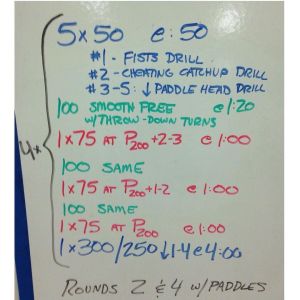 5 x 50 @ :50
#1 - FISTS DRILL
#2 - CHEATING CATCHUP DRILL
#3-5: ↓ PADDLE HEAD DRILL
100 SMOOTH FREE @ 1:20
W/ THROW-DOWN TURNS
4x
1 x 75 AT P200 +2-3 @ 1:00
100 SAME
1 x 75 AT P200 +1-2 @ 1:00
100 SAME
1 x 75 AT P200 @ 1:00
1 x 300/250 ↓1-4 @ 4:00
ROUNDS 2 & 4 W/ PADDLES